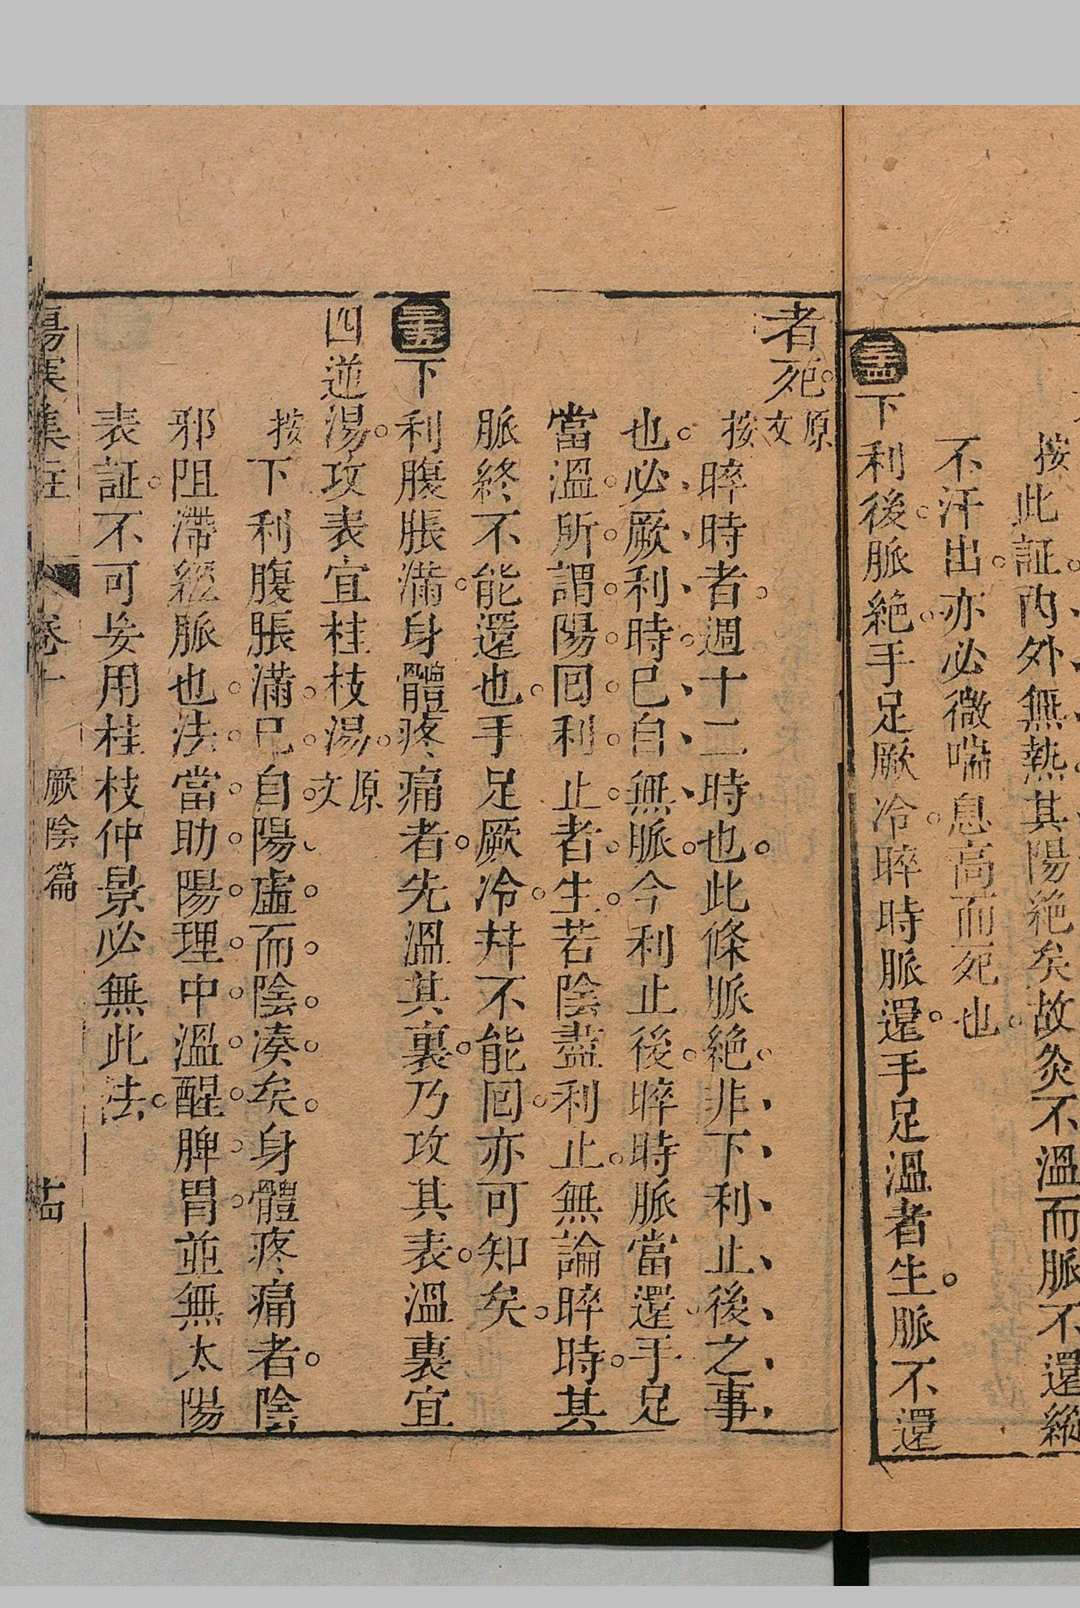 按此証內外無熱其陽絶矣故灸不溫而脈不還縱
不汗出亦必微喘息高而死也
下利後脈絶手足厥冷晬時脈還手足溫者生脈不還
者死原文
按晬時者週十二時也此條脈絶非下利止後之事
也必厥利時已自無脈今利止後晬時脈當還手足
當溫所謂陽回利止者生若陰盡利止無論晬時其
脈終不能還也手足厥冷并不能回亦可知矣
三五下利腹脹滿身體疼痛者先溫其裏乃攻其表溫裏宜
四逆湯攻表宜桂枝湯原文
按下利腹脹滿已自陽虛而陰凑矣身體疼痛者陰
邪阻滯經脈也法當助陽理中溫醒脾胃並無太陽
表証不可妄用桂枝仲景必無此法
傷寒集註 卷十 厥陰篇